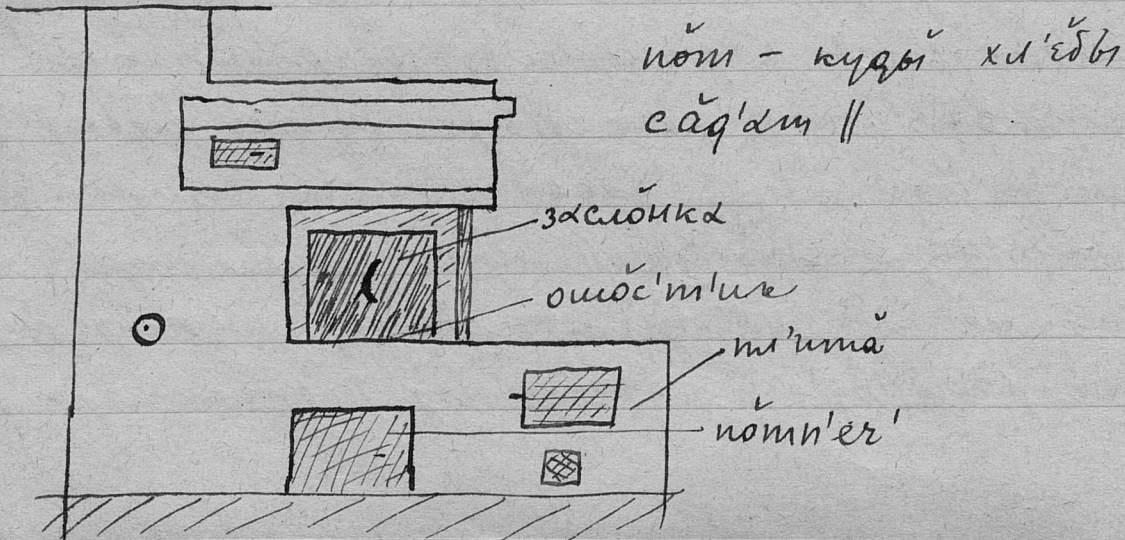 по̆т – куды̆ хл'ӗбы
сӑд'αт ||
зαсло̆нкα
ошо̆с'т'иk
пл'итӑ
по̆тп'еч'